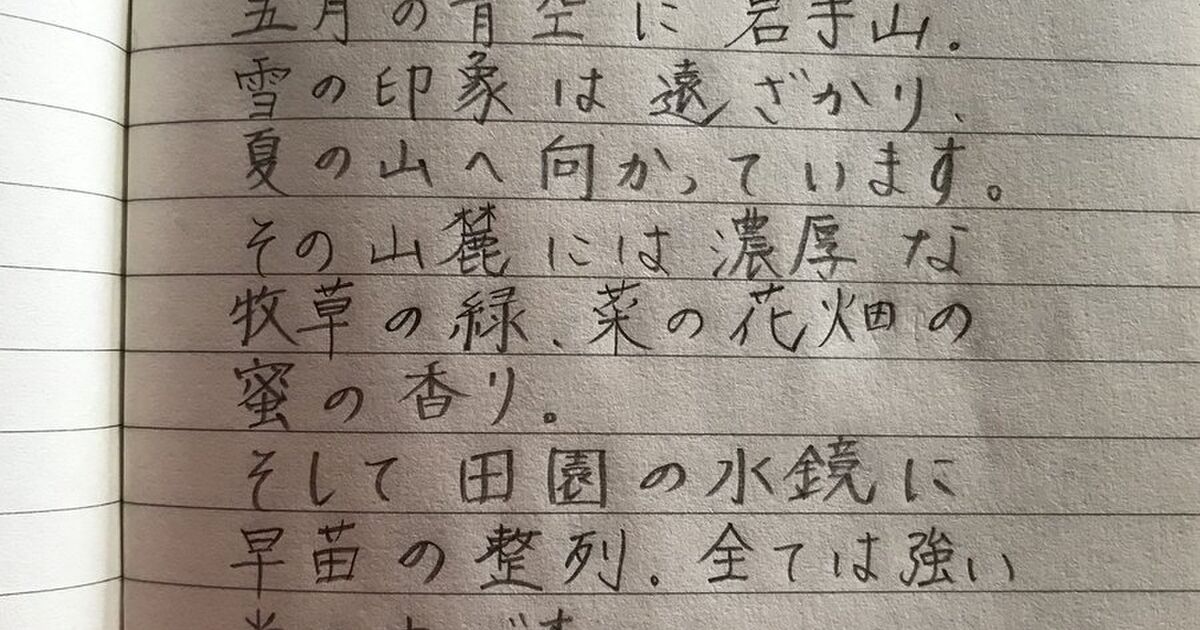 五月の青空に岩手山。
雪の印象は遠ざかり、
夏の山へ向かっています。
その山麓には濃厚な
牧草の緑、菜の花畑の
蜜の香り。
そして田園の水鏡に
早苗の整列。全ては強い